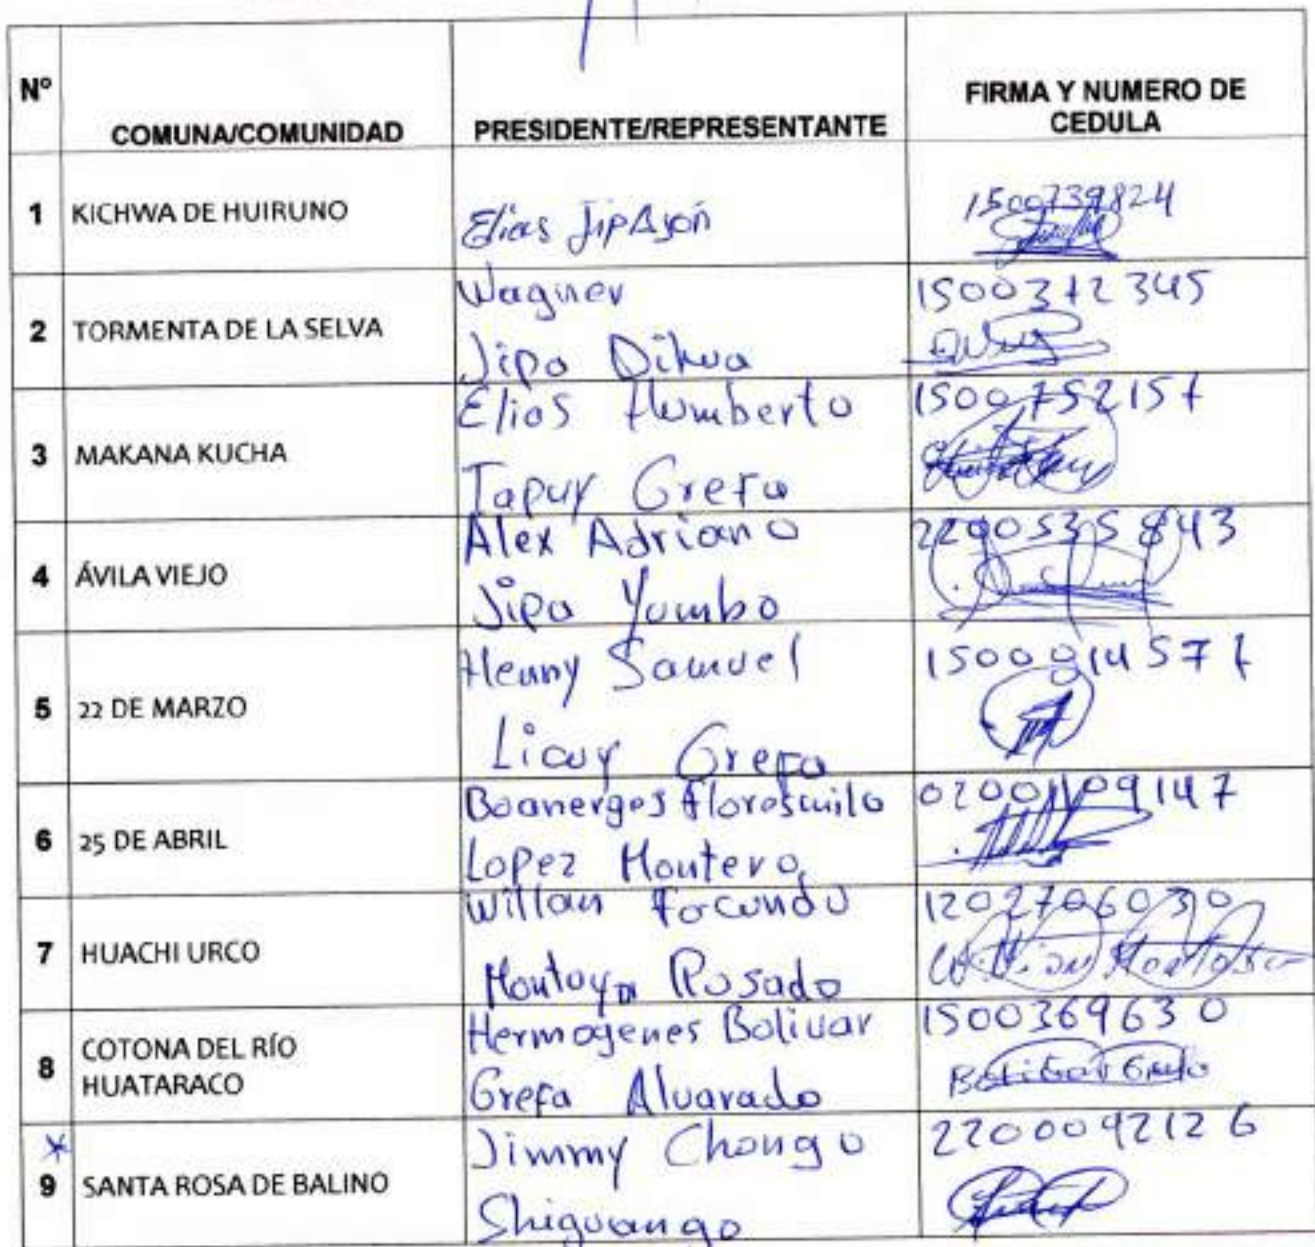 Nº
COMUNA/COMUNIDAD
PRESIDENTE/REPRESENTANTE
FIRMA Y NUMERO DE
CEDULA
1
KICHWA DE HUIRUNO
Elias Jip Ajón
1500739824
2
TORMENTA DE LA SELVA
Wagner
Jipa Dihua
1500312345
3
MAKANA KUCHA
Elias Humberto
Tapuy Grefa
1500752157
4
ÁVILA VIEJO
Alex Adriano
Jipa Yumbo
2200535843
5
22 DE MARZO
Henny Samuel
Licuy Grefa
1500014571
6
25 DE ABRIL
Boanerges Floresmilo
Lopez Montero
0200109147
7
HUACHI URCO
Willan Facundo
Montoya Rosado
1202706030
8
COTONA DEL RÍO
HUATARACO
Hermogenes Bolivar
Grefa Alvarado
1500369630
Bolivar Grefa
9
SANTA ROSA DE BALINO
Jimmy Chongo
Shiguango
2200092126